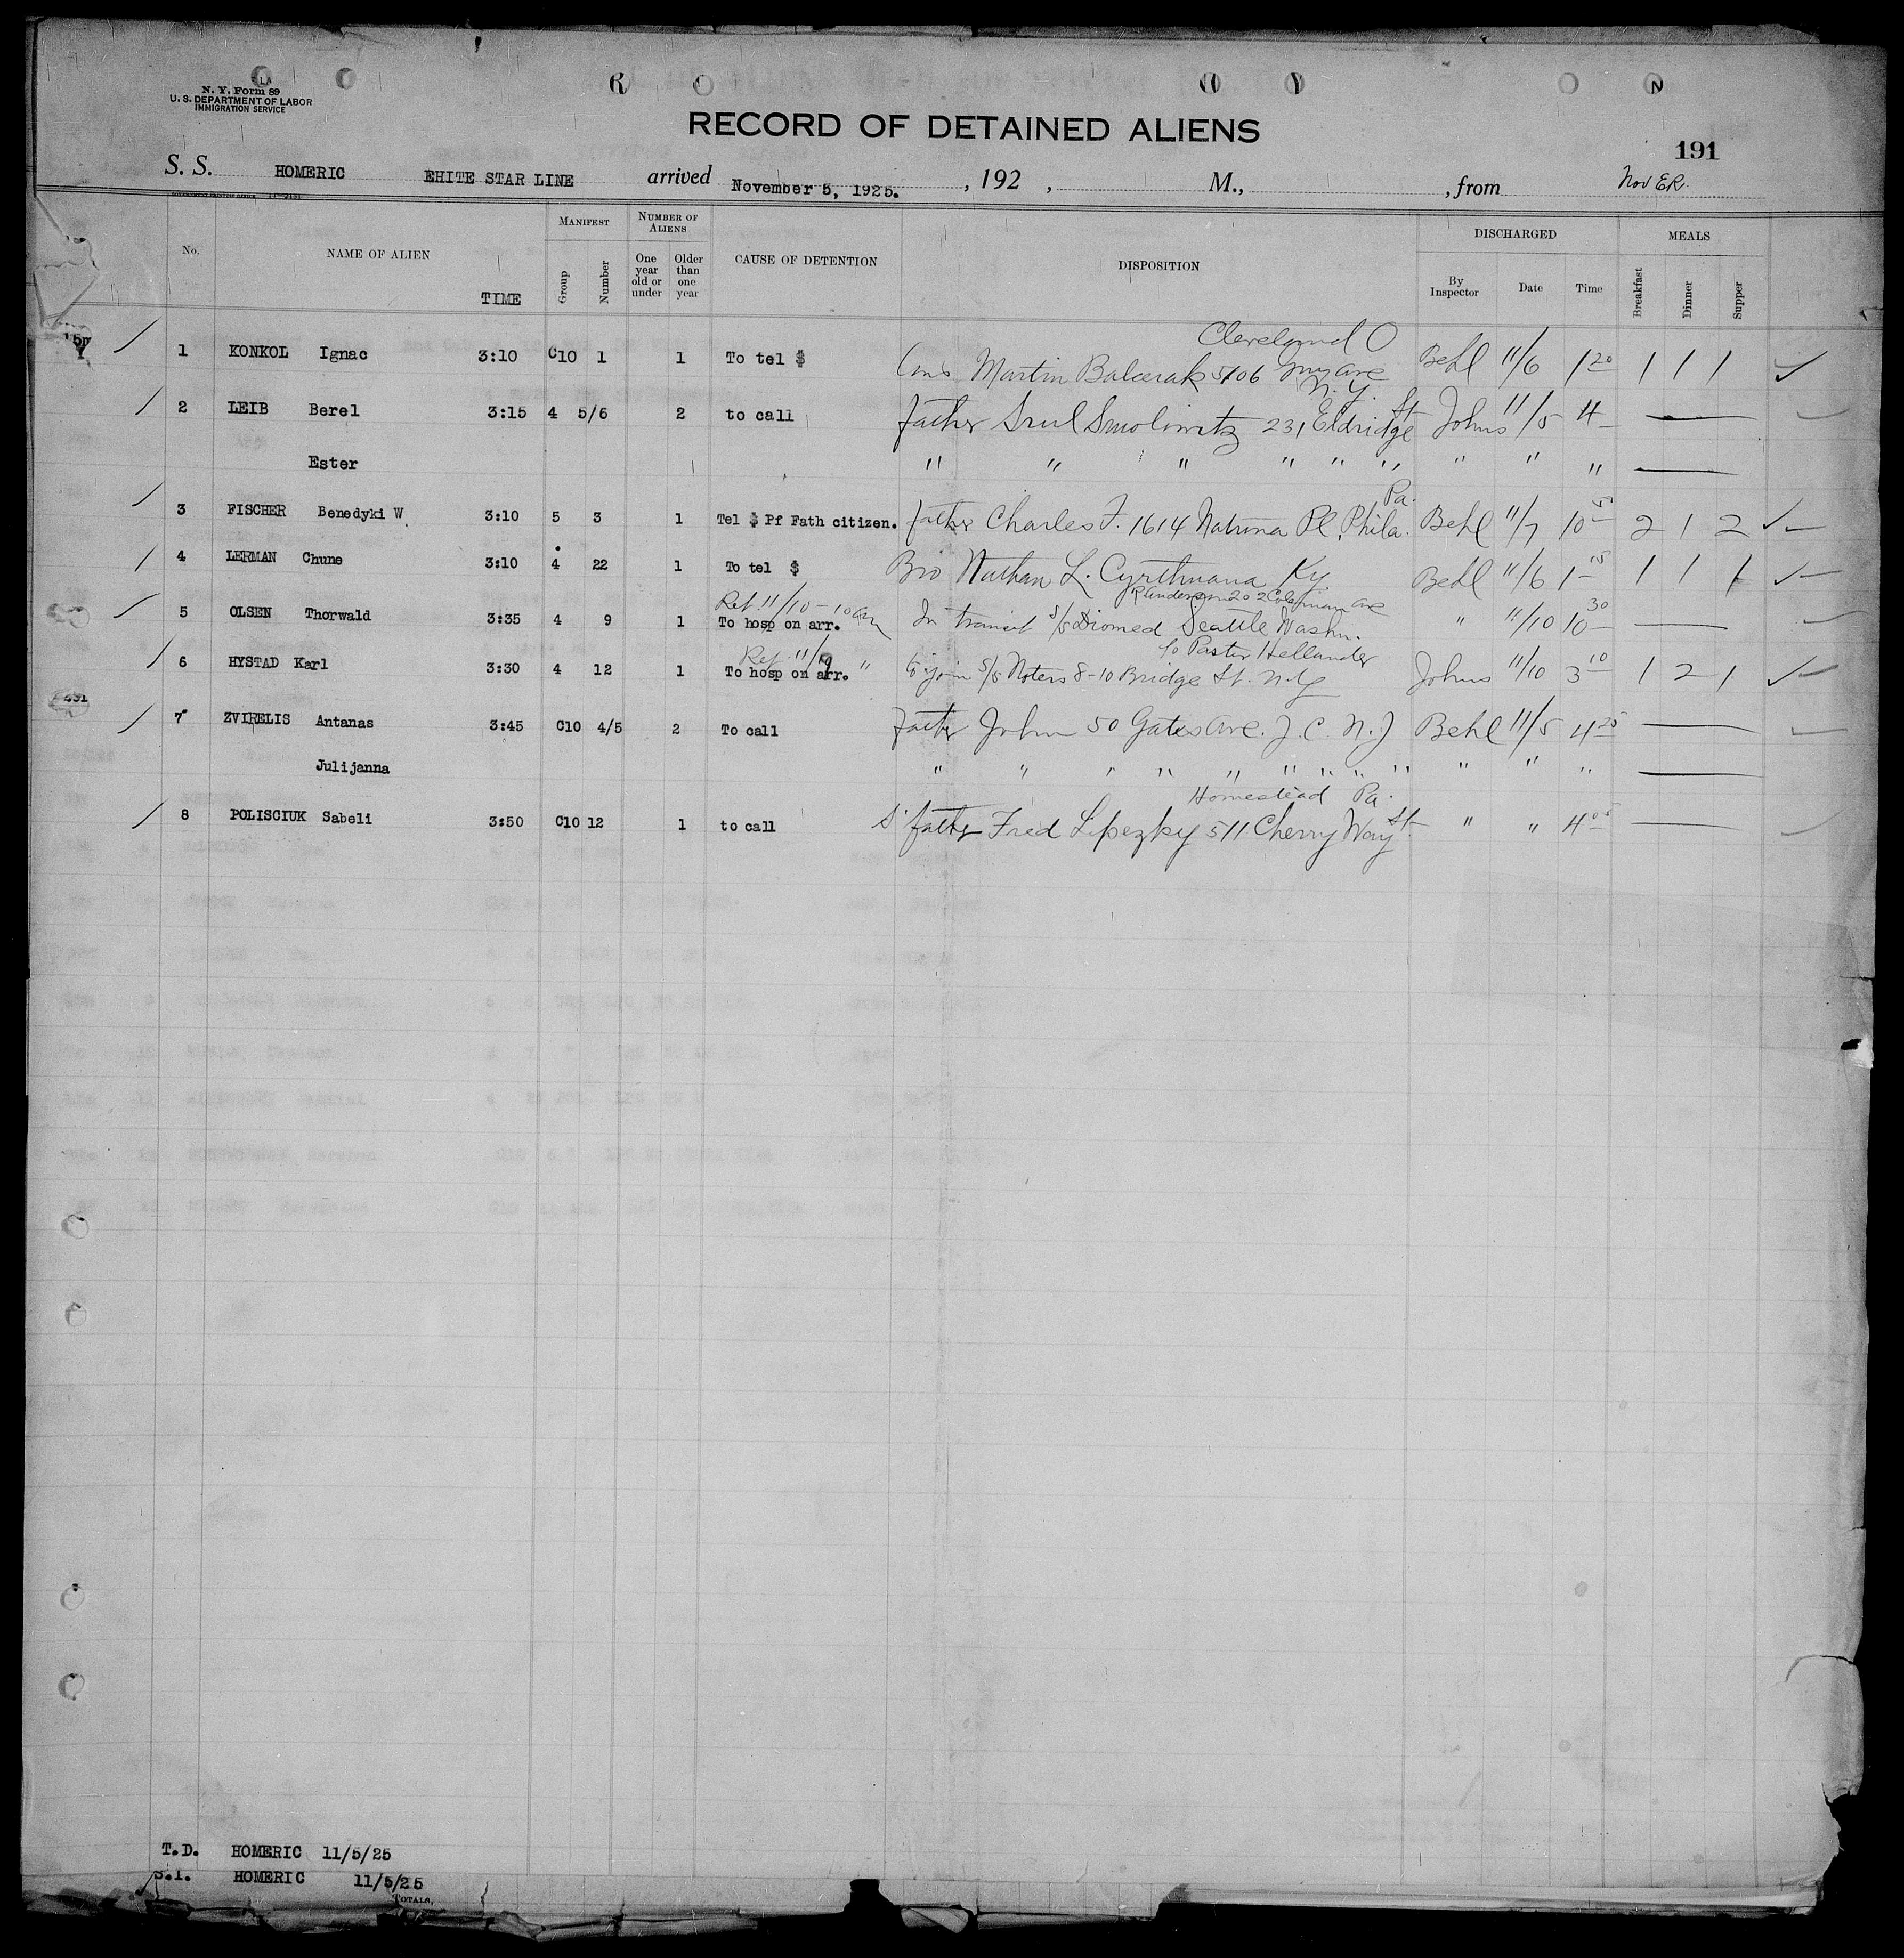 N. Y. Form 89
U. S. DEPARTMENT OF LABOR
IMMIGRATION SERVICE
RECORD OF DETAINED ALIENS
191
S. S. HOMERIC EHITE STAR LINE arrived November 5, 1925. , 192 , M., , from
No. NAME OF ALIEN TIME MANIFEST Group Number NUMBER OF ALIENS One year old or under Older than one year CAUSE OF DETENTION DISPOSITION DISCHARGED By Inspector Date Time MEALS Breakfast Dinner Supper
Cleveland O
1 KONKOL Ignac 3:10 C10 1 1 To tel $ Martin Balcerak 5106 ave Behl 11/6 1 20 1 1 1
N. Y.
2 LEIB Berel 3:15 4 5/6 2 to call father Srul Smolowitz 231 Eldridge St Johns 11/5 4 —
Ester " " " " " " " " " —
Pa.
3 FISCHER Benedyki W 3:10 5 3 1 Tel $ Pf Fath citizen. father Charles F. 1614 Natrona Pl. Phila. Behl 11/7 10 50 2 1 2
4 LERMAN Chune 3:10 4 22 1 To tel $ Bro Nathan L. Ky Behl 11/6 1 15 1 1 1
Ret. 11/10 - 10 am
5 OLSEN Thorwald 3:35 4 9 1 To hosp on arr. In transit S/S Diomed Seattle Washn. " 11/10 10 30 —
Ret. 11/9 " c/o Pastor Hellander
6 HYSTAD Karl 3:30 4 12 1 To hosp on arr. to join S/S 8-10 Bridge St. N.Y Johns 11/10 3 10 1 2 1
7 ZVIRELIS Antanas 3:45 C10 4/5 2 To call father John 50 Gates Ave. J. C. N. J Behl 11/5 4 25 —
Julijanna " " " " " " " " " " " " —
Homestead Pa.
8 POLISCIUK Sabeli 3:50 C10 12 1 to call S' father Fred Lipezky 511 Cherry Way St. " " 4 05 —
T.D. HOMERIC 11/5/25
S.I. HOMERIC 11/5/25
TOTALS,